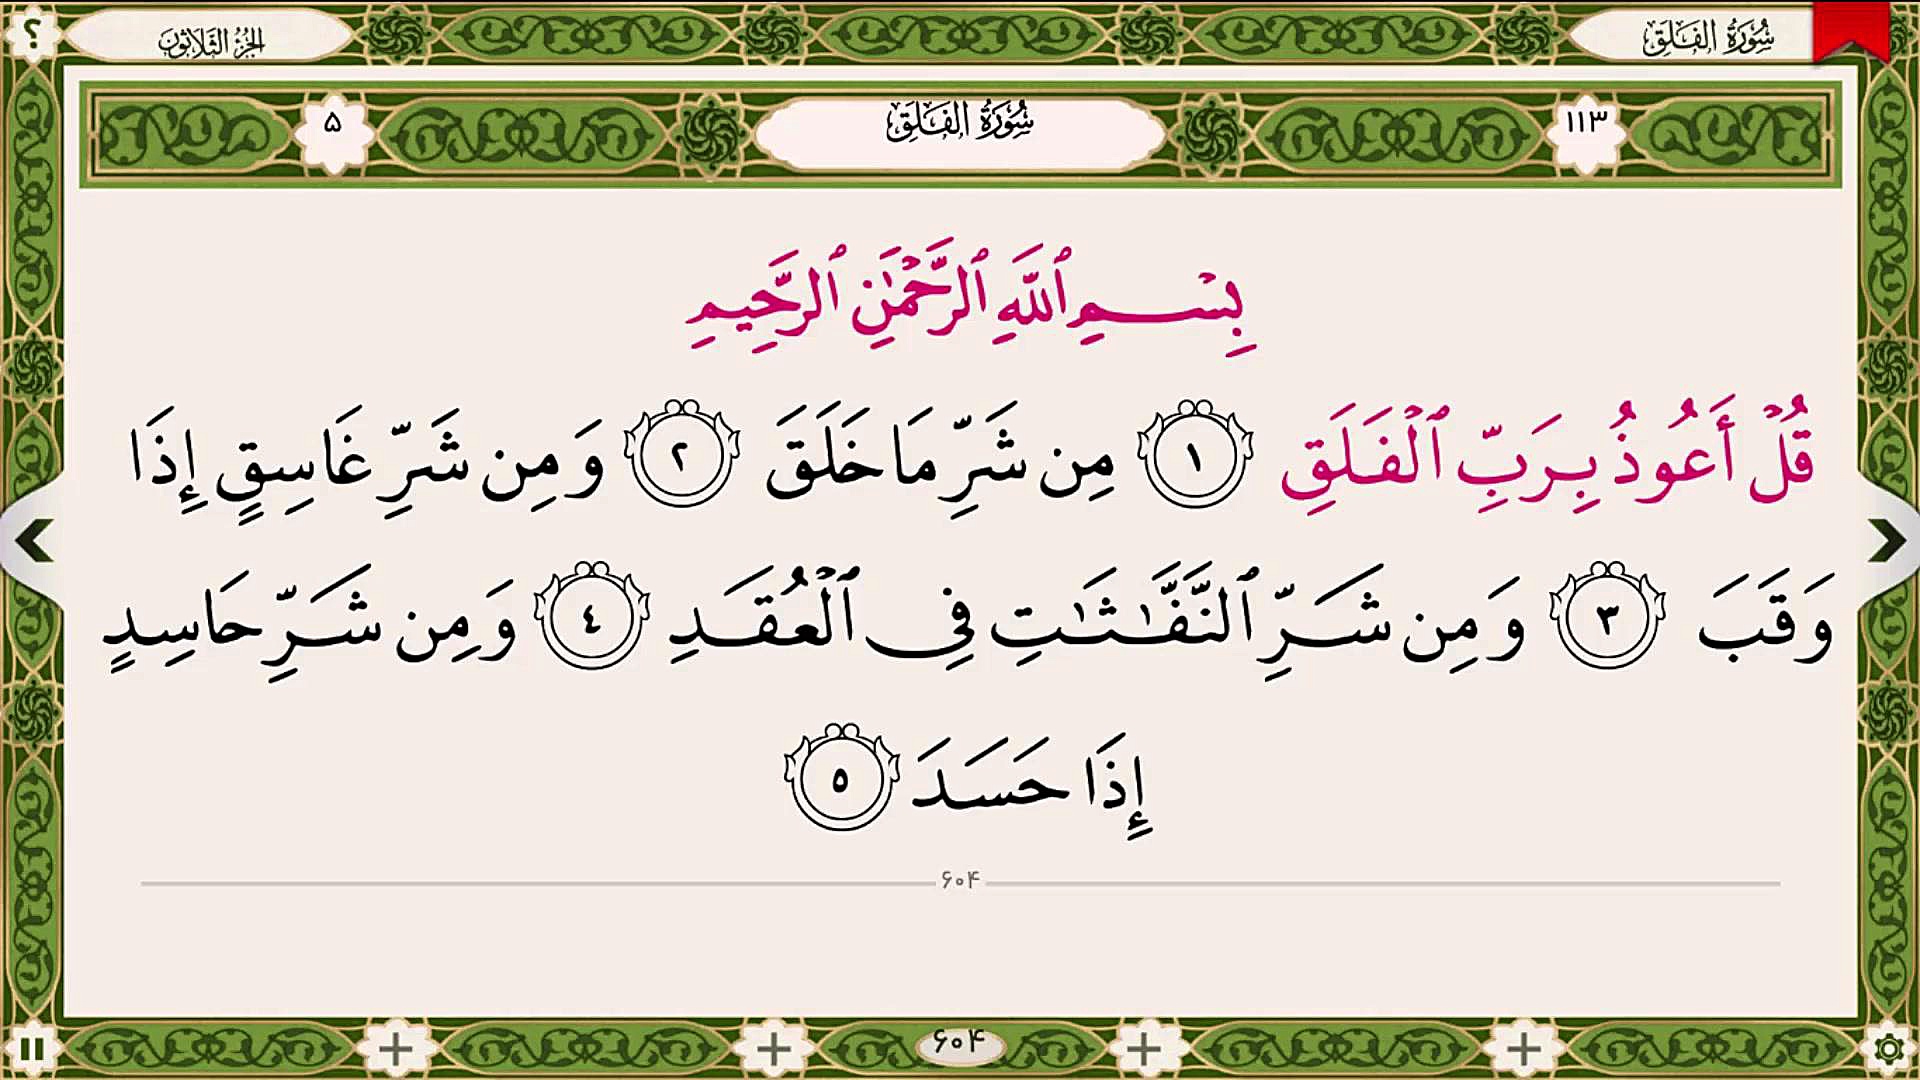 ؟ الجزء الثلاثون سُورَةُ الفَلَقِ
۵ سُورَةُ الفَلَقِ ۱۱۳
بِسْمِ ٱللَّهِ ٱلرَّحْمَٰنِ ٱلرَّحِيمِ
قُلْ أَعُوذُ بِرَبِّ ٱلْفَلَقِ ١ مِن شَرِّ مَا خَلَقَ ٢ وَمِن شَرِّ غَاسِقٍ إِذَا
وَقَبَ ٣ وَمِن شَرِّ ٱلنَّفَّٰثَٰتِ فِى ٱلْعُقَدِ ٤ وَمِن شَرِّ حَاسِدٍ
إِذَا حَسَدَ ٥
۶۰۴
۶۰۴